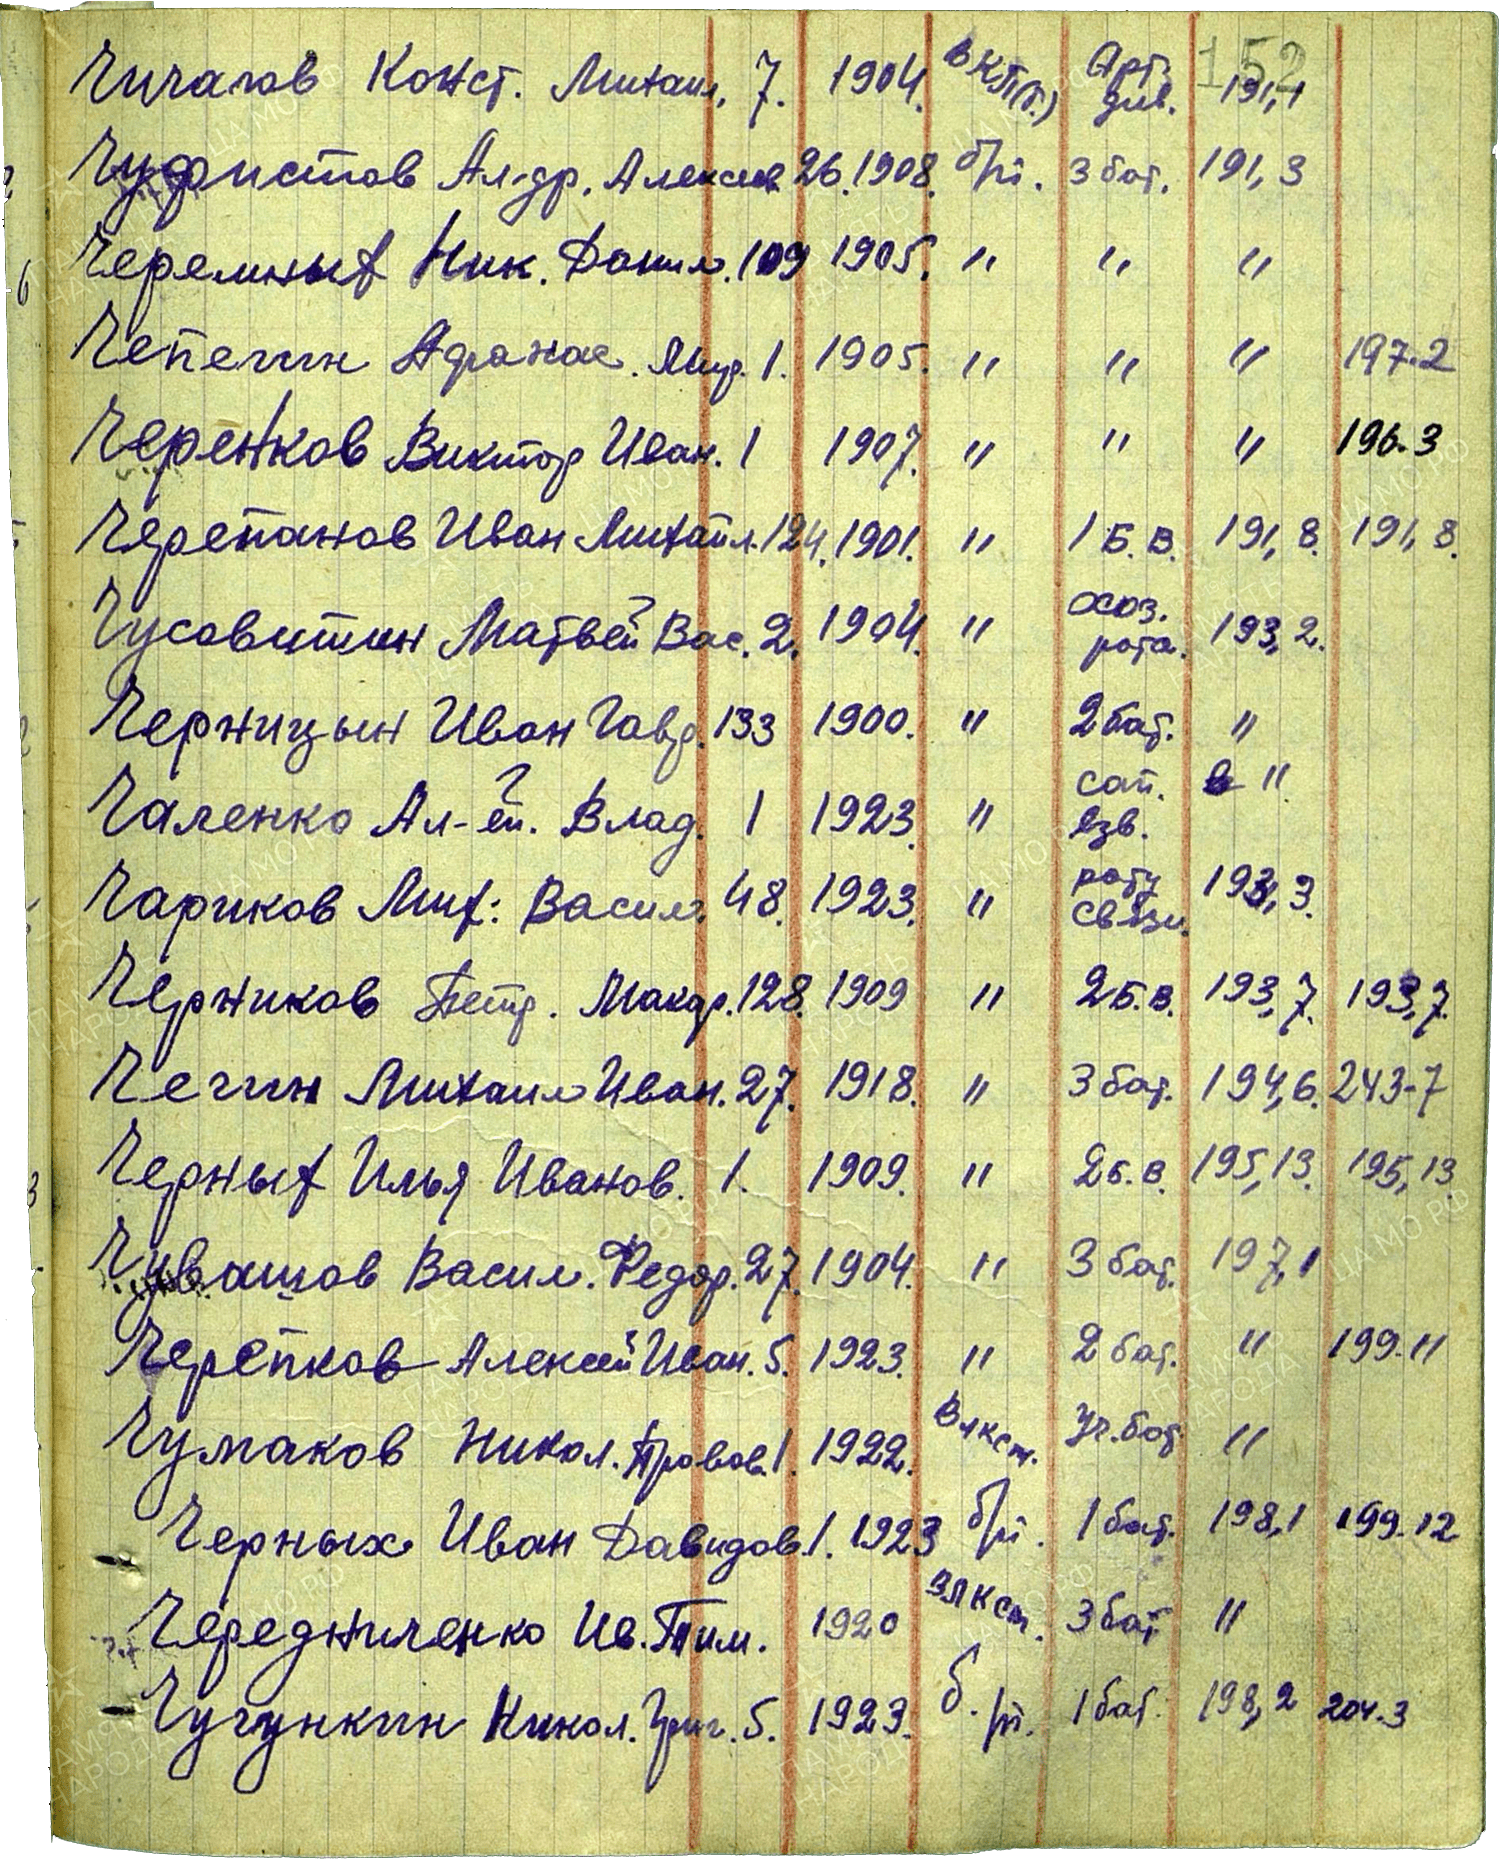 152
Чигагов Конст. Михаил. 7. 1904. ВКП(б) Арт. див. 191,1
Чуфистов Ал-др. Алексеев 26. 1908. б/п. 3 бат. 191, 3
Черемных Ник. Данил. 109 1905. " " "
Чепегин Афанас. 1. 1905. " " " 197.2
Черенков Виктор Иван. 1 1907. " " " 196.3
Черепанов Иван Михайл. 124. 1901. " 1 Б.В. 191, 8. 191, 8.
Чусовитин Матвей Вас. 2. 1904. " рота. 193, 2.
Черницын Иван Гавр. 133 1900. " 2 бат. "
Чаленко Ал-ей. Влад. 1 1923. " сап. взв. "
Чариков Мих: Васил. 48. 1923. " роту связи. 193, 3.
Черников Петр. Макар. 128. 1909 " 2 Б.В. 193, 7. 193, 7.
Чегин Михаил Иван. 27. 1918. " 3 бат. 194, 6. 243-7
Черных Илья Иванов. 1. 1909. " 2 Б.В. 195, 13. 195, 13.
Чувашов Васил. Федор. 27. 1904. " 3 бат. 197, 1
Черепков Алексей Иван. 5. 1923. " 2 бат. " 199.11
Чумаков Никол. 1. 1922. Влксм. Уч. бат "
Черных Иван Давидов. 1. 1923 б/п. 1 бат. 198,1 199.12
Чередниченко Ив. Тим. 1920 ВЛКСМ. 3 бат "
Чугункин Никол. Григ. 5. 1923. б./п. 1 бат. 198, 2 204.3